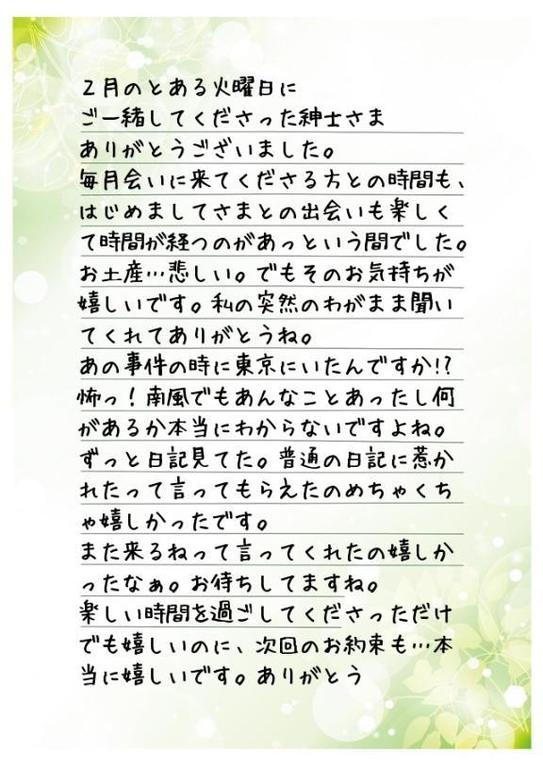 2月のとある火曜日に
ご一緒してくださった紳士さま
ありがとうございました。
毎月会いに来てくださる方との時間も、
はじめましてさまとの出会いも楽しく
て時間が経つのがあっという間でした。
お土産…悲しい。でもそのお気持ちが
嬉しいです。私の突然のわがまま聞い
てくれてありがとうね。
あの事件の時に東京にいたんですか!?
怖っ!南風でもあんなことあったし何
があるか本当にわからないですよね。
ずっと日記見てた。普通の日記に惹か
れたって言ってもらえたのめちゃくち
ゃ嬉しかったです。
また来るねって言ってくれたの嬉しか
ったなぁ。お待ちしてますね。
楽しい時間を過ごしてくださっただけ
でも嬉しいのに、次回のお約束も…本
当に嬉しいです。ありがとう